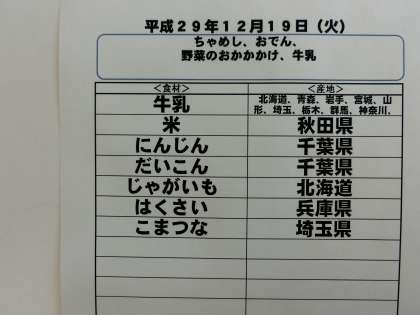 平成29年12月19日（火）
ちゃめし、おでん、
野菜のおかかかけ、牛乳
＜食材＞ ＜産地＞
牛乳 北海道、青森、岩手、宮城、山
形、埼玉、栃木、群馬、神奈川、
米 秋田県
にんじん 千葉県
だいこん 千葉県
じゃがいも 北海道
はくさい 兵庫県
こまつな 埼玉県